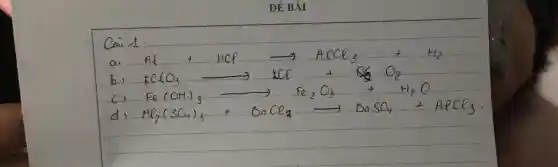 ĐỀ BÀI
Câu 1:
a, Al + HCl → AlCl3 + H2
b, KClO3 → KCl + O2
c, Fe(OH)3 → Fe2O3 + H2O
d, Al2(SO4)3 + BaCl2 → BaSO4 + AlCl3.